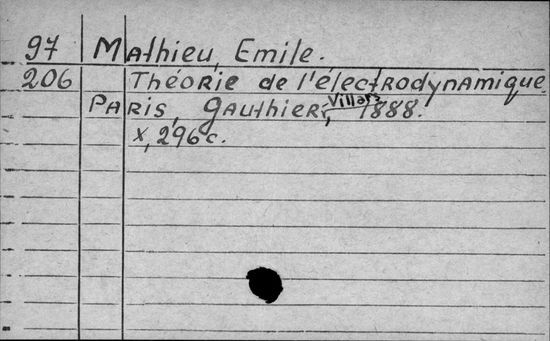 97 Mathieu, Emile.
206 Théorie de l'électrodynamique.
Paris, Gauthier-Villars, 1888.
X, 296 c.